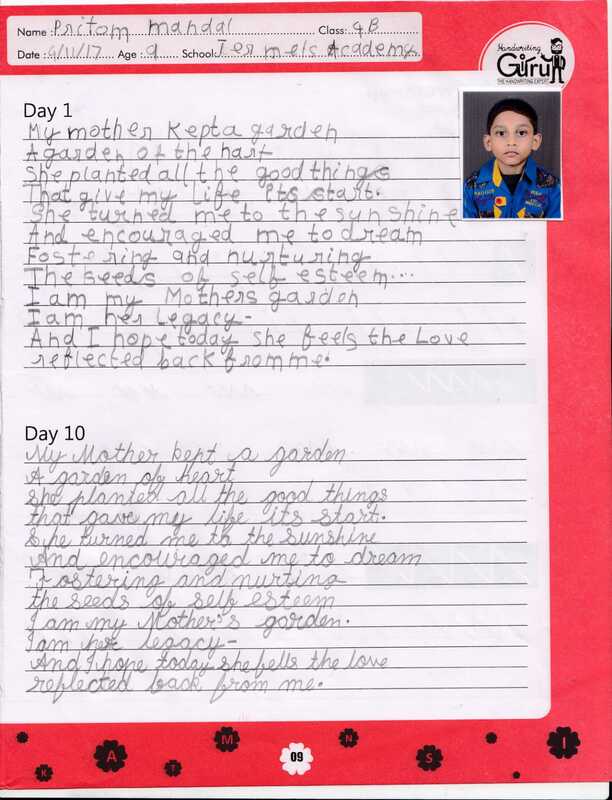 Name : Pritom mandal Class: 4B
Date : 6/11/17 Age : 9 School: Jermels Academy
Handwriting
Guru
THE HANDWRITING EXPERT
Day 1
My mother Kept a garden
A garden of the hart
She planted all the good things
That give my life Its start.
She turned me to the sunshine
And encouraged me to dream
Fostering and nurturing
The seeds of self esteem...
I am my Mothers garden
I am her legacy-
And I hope today she feels the Love
reflected back from me.
Day 10
My Mother kept a garden
A garden of heart
she planted all the good things
that gave my life its start.
She turned me to the sunshine
And encouraged me to dream
Fostering and nurting
the seeds of self esteem
I am my Mother's garden.
I am her legacy-
And I hope today she fells the love
reflected back from me.
K A T M 09 N S I